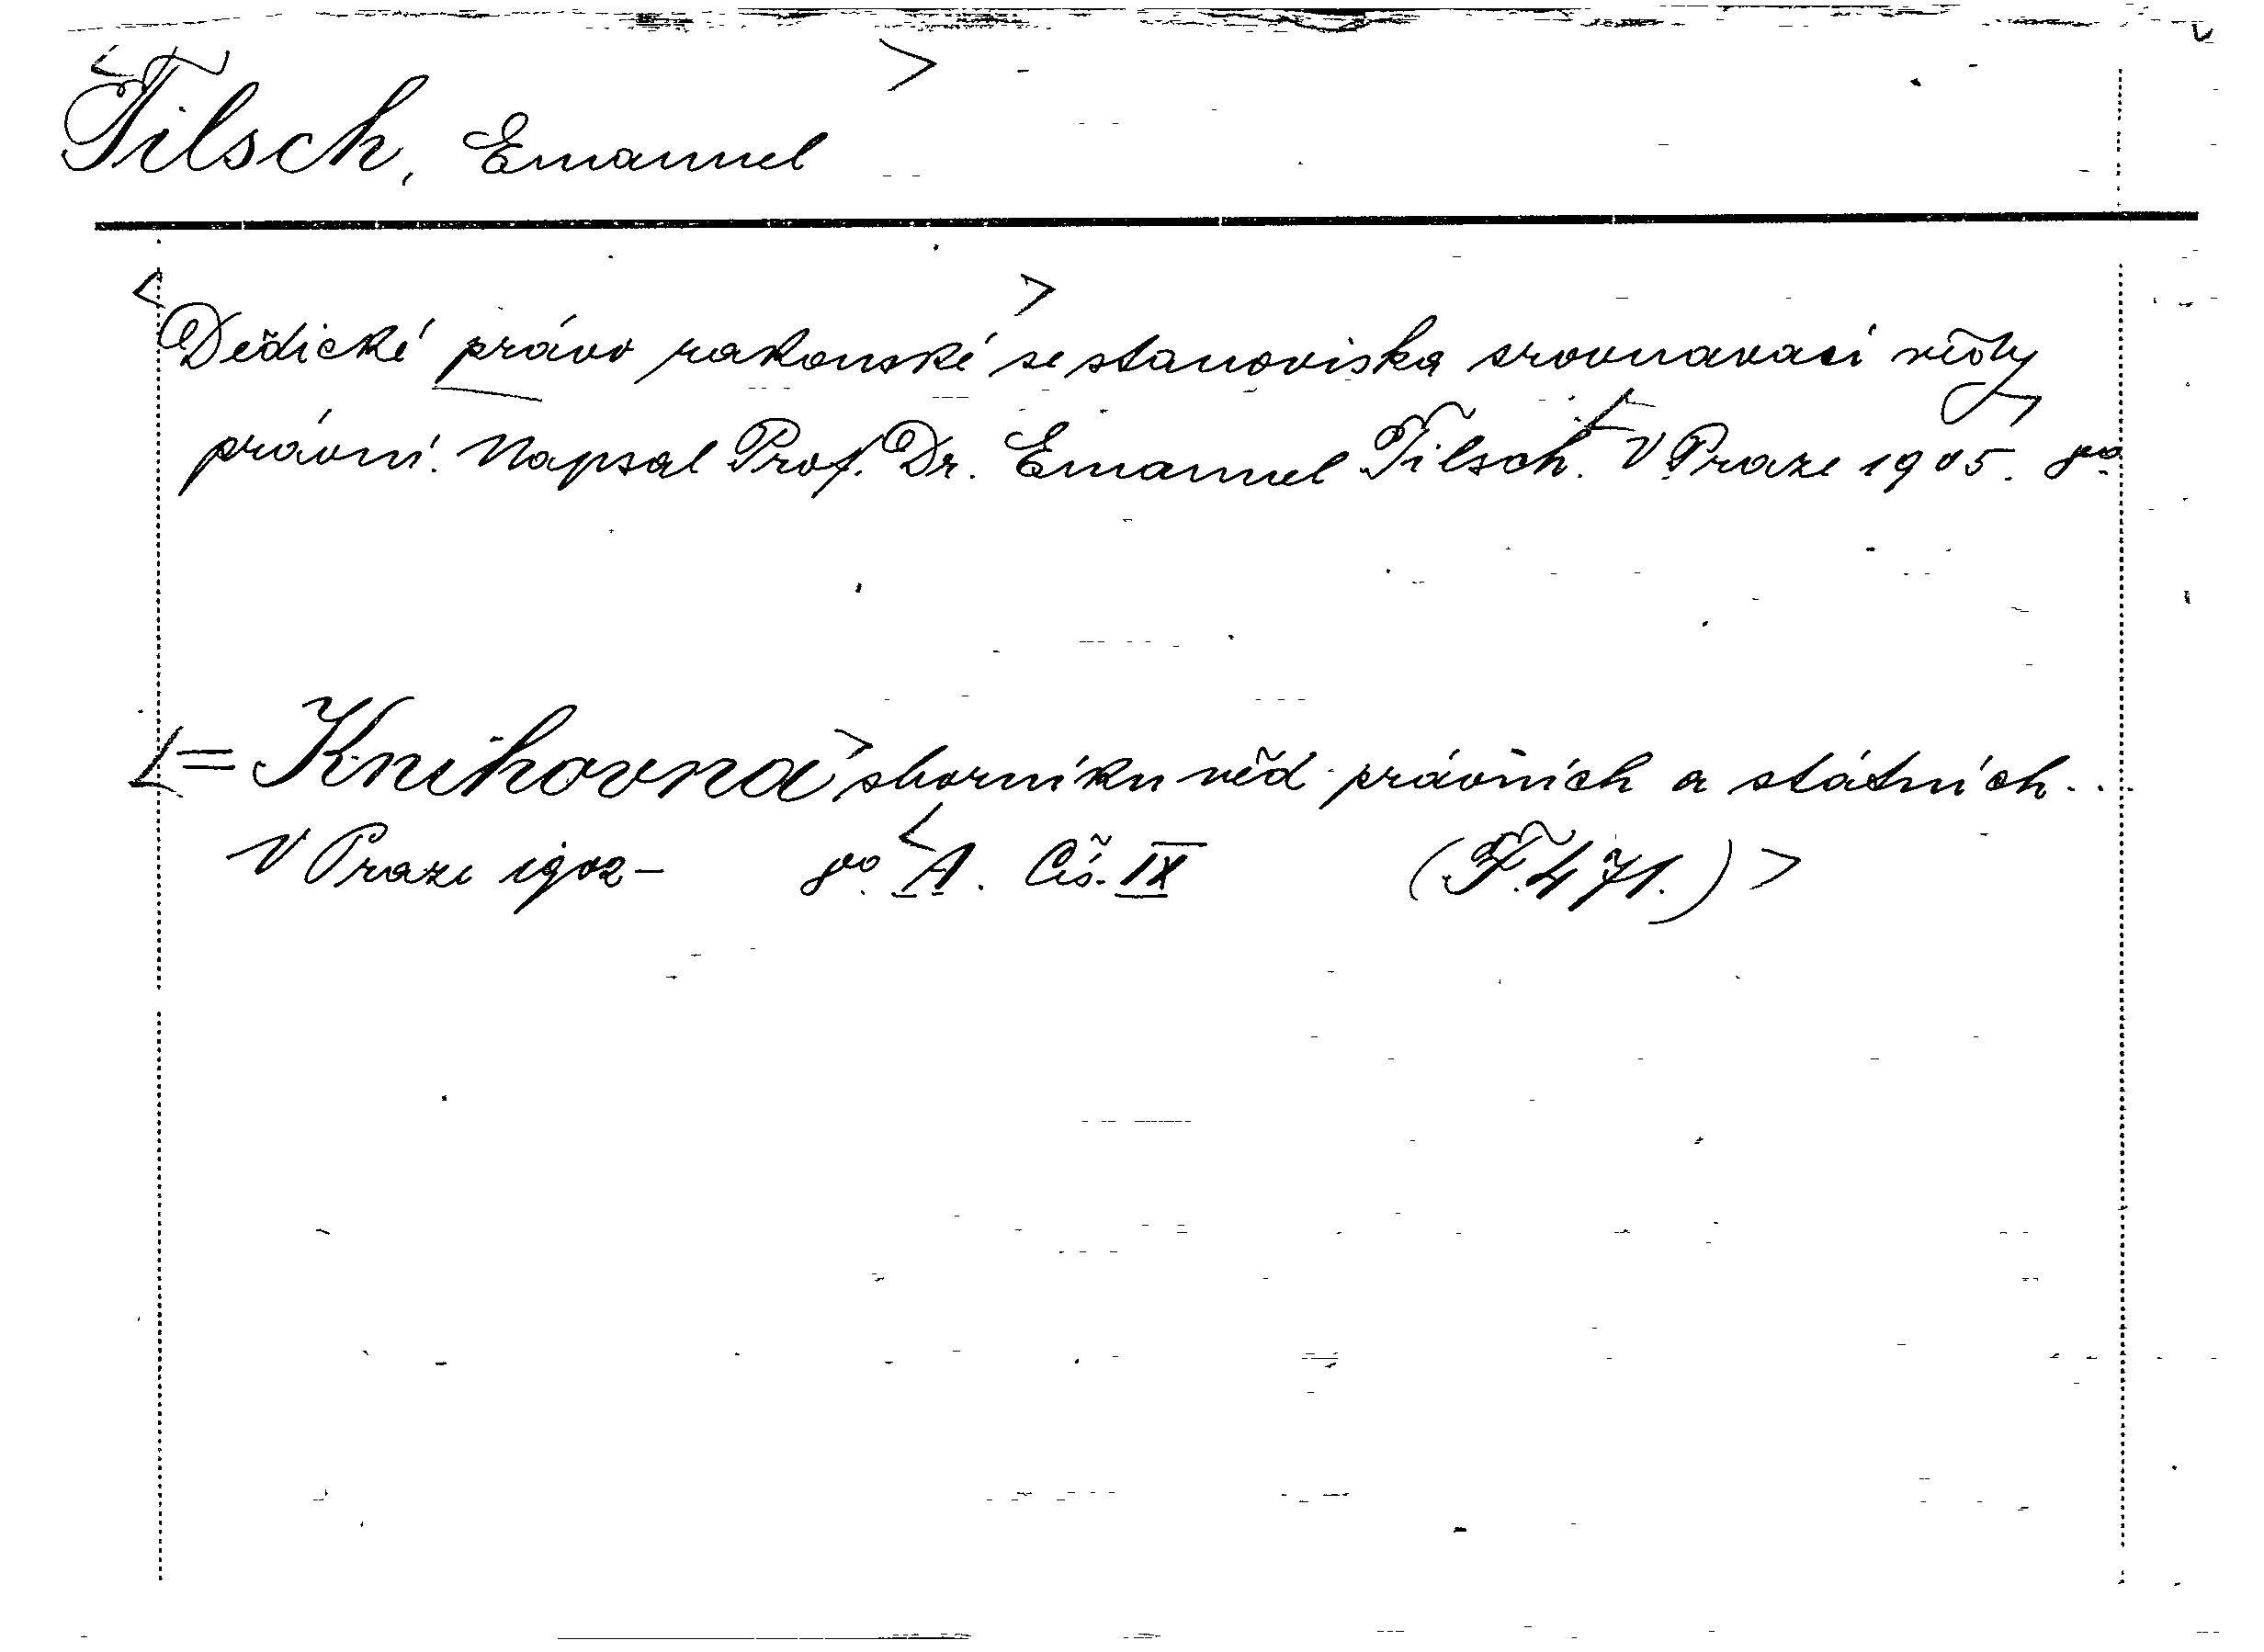 <Tilsch, Emanuel>
<Dědické právo rakouské> se stanoviska srovnávací vědy
právní. Napsal Prof. Dr. Emanuel Tilsch. V Praze 1905. 8º.
<= Knihovna> sborníku věd právních a státních...
V Praze 1902– 8º. <A. Čís. IX (F.471.)>